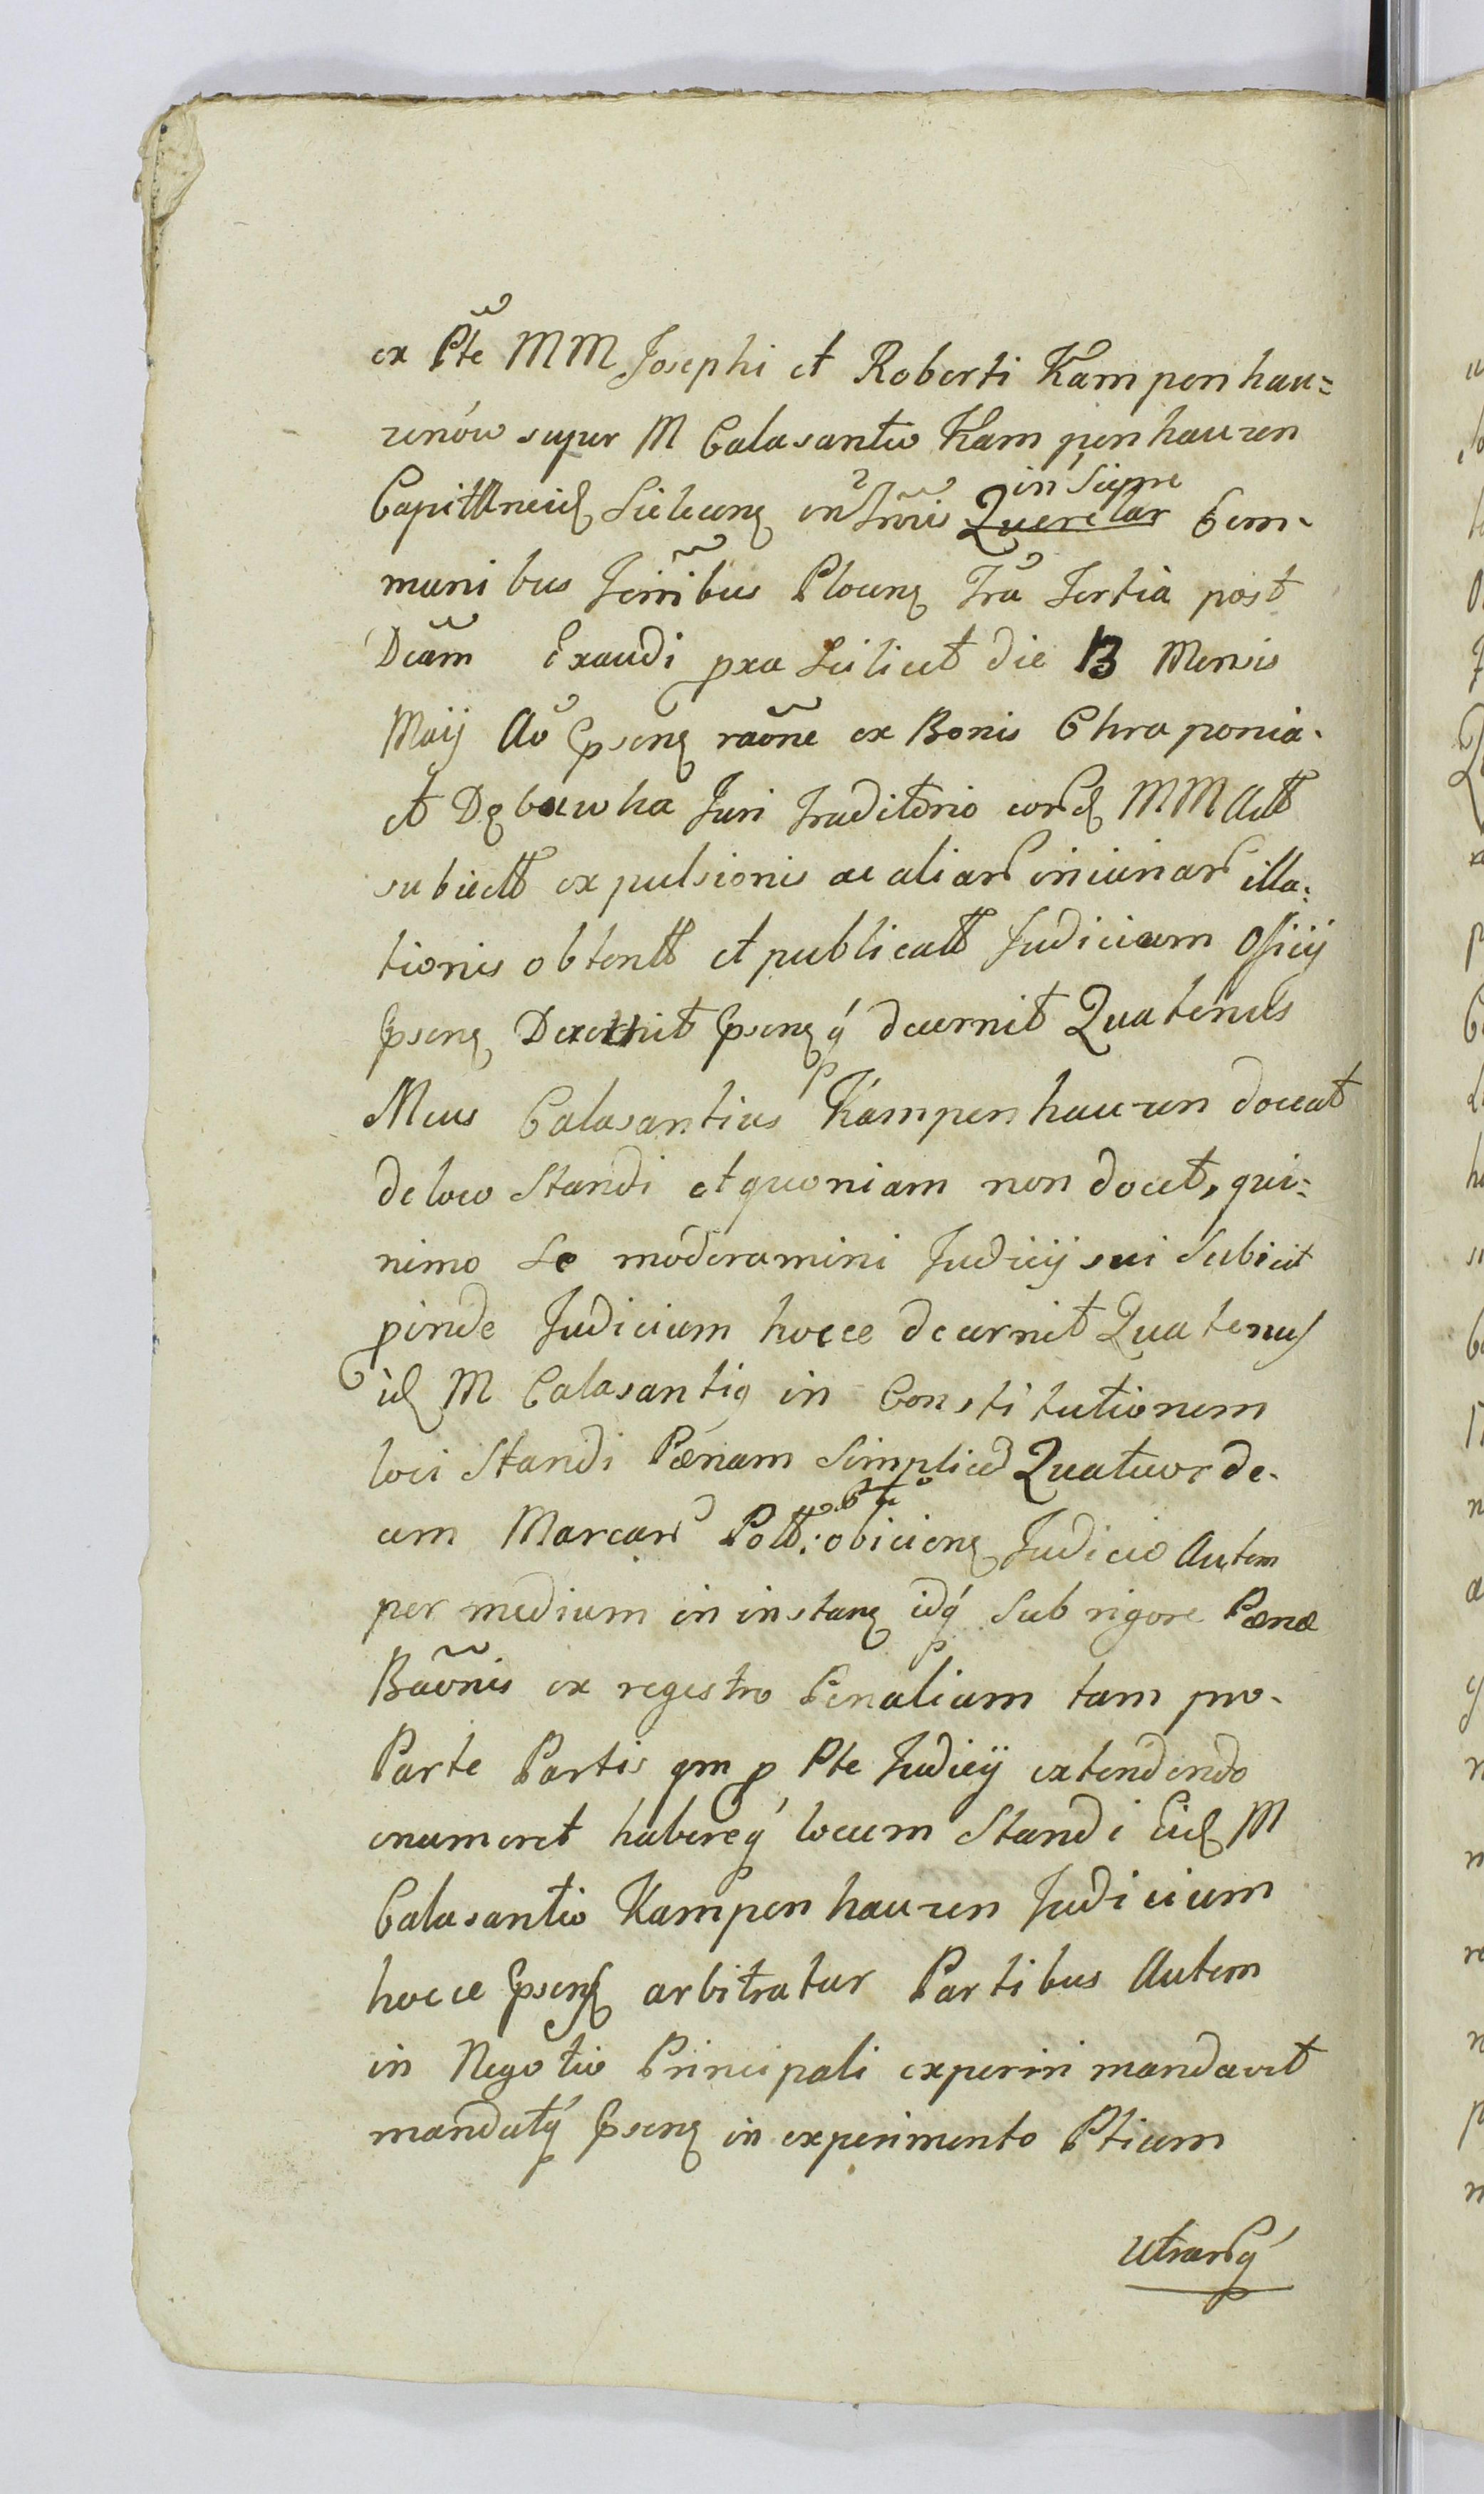 ex Ptẽ MM Josephi et Roberti Kampenhau=
zenów super M Calasantio Kampenhauzen
in Suppe
Querelar Com-
munibus Termĩbus Plocen Fra Tertia post
Dcãm Exaudi pxa Scilicet die 13 Mensis
Maij Ao Psen raõne ex Bonis Chraponia.
et Dębuwka Juri Traditorio eord MM Actt
subiectt expulsionis ac aliar iniuriar illa:
tionis obtentt et publicatt Judicium Officij
psen psenq decernit Quatenus
Mcus Calasantius Kampenhauzen doceat
de loco Standi et quoniam non docet, qui=
nimo Se moderamini Judicij sui Subicit
pinde Judicium hocce decernit Quatenus
id M Calasantiq in Constitutionem
loci Standi Pænam Simplicem Quatuorde-
cim Marcar Poll: Judicio Autem
per medium in instan idq Sub rigore Pænæ
Bañonis ex registro Penalium tam pro-
Parte Partis qm p Pte Judicij extendendo
enumeret habereq locum Standi Eid M
Calasantio Kampenhauzen Judicium
hocce Psens arbitratur Partibus Autem
in Negotio Principali experiri mandavit
mandatq Psen in experimento Ptium
Utrarq